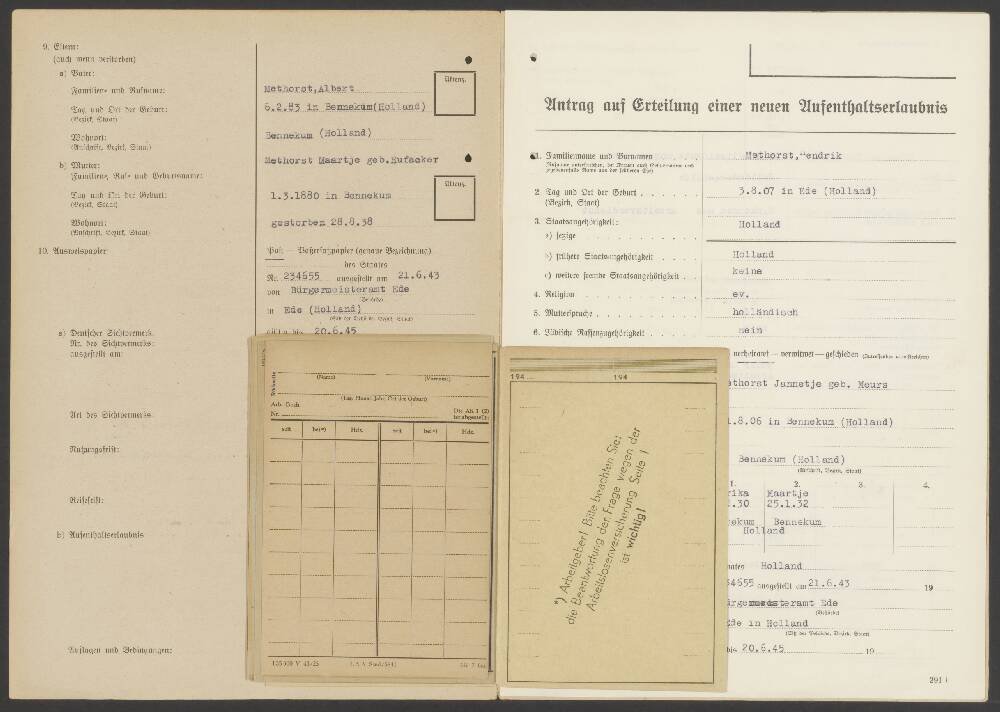 9. Eltern:
(auch wenn verstorben)
a) Vater:
Familien- und Rufname:
Methorst, Albert
Aktenz.
Tag und Ort der Geburt:
(Bezirk, Staat)
6.2.83 in Bennekum(Holland)
Wohnort:
(Anschrift, Bezirk, Staat)
Bennekum (Holland)
b) Mutter:
Familien-, Ruf- und Geburtsname:
Methorst Maartje geb.Hufacker
Aktenz.
Tag und Ort der Geburt:
(Bezirk, Staat)
1.3.1880 in Bennekum
Wohnort:
(Anschrift, Bezirk, Staat)
gestorben 28.8.38
10. Ausweispapier
Paß — Paßersatzpapier (genaue Bezeichnung)
des Staates
Nr. 234655 ausgestellt am 21.6.43
von Bürgermeisteramt Ede
(Behörde)
in Ede (Holland)
gültig bis 20.6.45
a) Deutscher Sichtvermerk
Nr. des Sichtvermerks:
ausgestellt am:
Art des Sichtvermerks
Nutzungsfrist:
Reisefrist:
b) Aufenthaltserlaubnis
Auflagen und Bedingungen:
(Name) (Vorname)
(Tag, Monat, Jahr, Ort der Geburt)
Arb. Buch
Nr.
Die AK 1 (2)
ist abgestellt:
seit bei*) Hdz. seit bei*) Hdz.
194 194
*) Arbeitgeber! Bitte beachten Sie:
die Beantwortung der Frage wegen der
Arbeitslosenversicherung Seite 1
ist wichtig!
Antrag auf Erteilung einer neuen Aufenthaltserlaubnis
1. Familienname und Vornamen
Methorst, Hendrik
2. Tag und Ort der Geburt
(Bezirk, Staat)
3.8.07 in Ede (Holland)
3. Staatsangehörigkeit:
a) jetzige
Holland
b) frühere Staatsangehörigkeit
Holland
c) weitere fremde Staatsangehörigkeit
keine
4. Religion
ev.
5. Muttersprache
holländisch
6. Jüdische Rassenzugehörigkeit
nein
verheiratet — verwitwet — geschieden
thorst Jannetje geb. Meurs
.8.06 in Bennekum (Holland)
Bennekum (Holland)
1. 2. 3. 4.
rika Maartje
.30 25.1.32
ekum Bennekum
Holland
aates Holland
4655 ausgestellt am 21.6.43 19
rgermeisteramt Ede
(Behörde)
de in Holland
bis 20.6.45 19
291